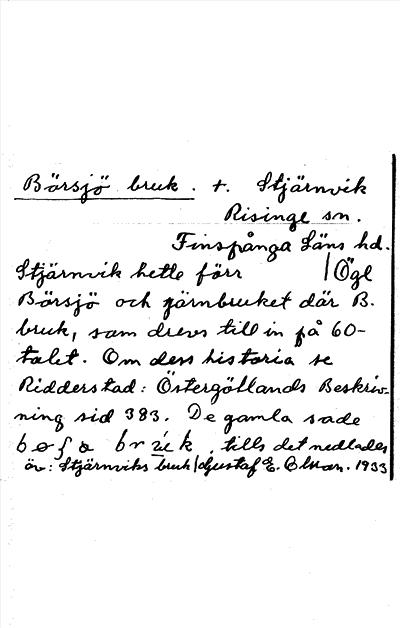 Börsjö bruk. t. Stjärnvik
Risinge sn.
Finspånga Läns hd.
Stjärnvik hette förr | Ögl
Börsjö och järnbruket där B.
bruk, som drevs till in på 60-
talet. Om dess historia se
Ridderstad: Östergötlands Beskriv-
ning sid 383. De gamla sade
tills det nedlades
öv: Stjärnviks bruk | Gustaf E. Olsson. 1933